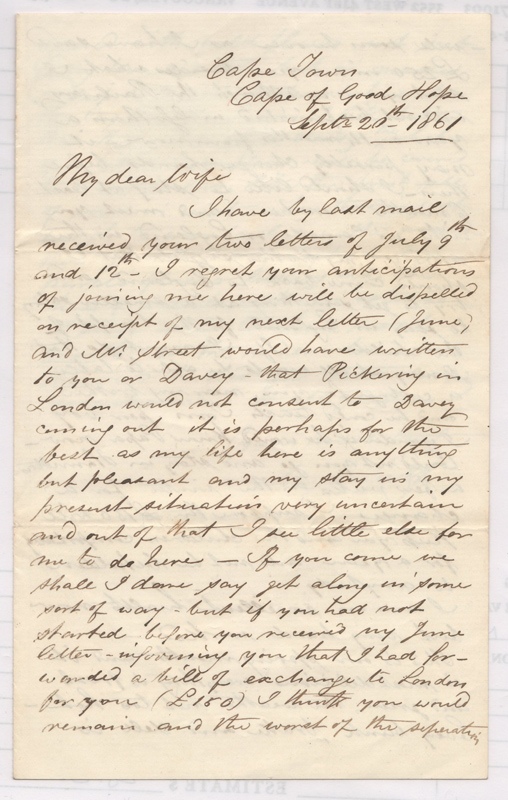 Cape Town
Cape of Good Hope
Septr 20th 1861
My dear Wife
I have by last mail
received your two letters of July 9th
and 12th - I regret your anticipations
of joining me here will be dispelled
on receipt of my next letter (June)
and Mr Street would have written
to you or Davey - that Pickering in
London would not consent to Davey
coming out it is perhaps for the
best as my life here is anything
but pleasant and my stay in my
present situation very uncertain
and out of that I see little else for
me to do here - If you come we
shall I dare say get along in some
sort of way - but if you had not
started before you received my June
letter - informing you that I had for-
warded a bill of exchange to London
for you (£150) I think you would
remain and the worst of the seperation
ESTIMATES